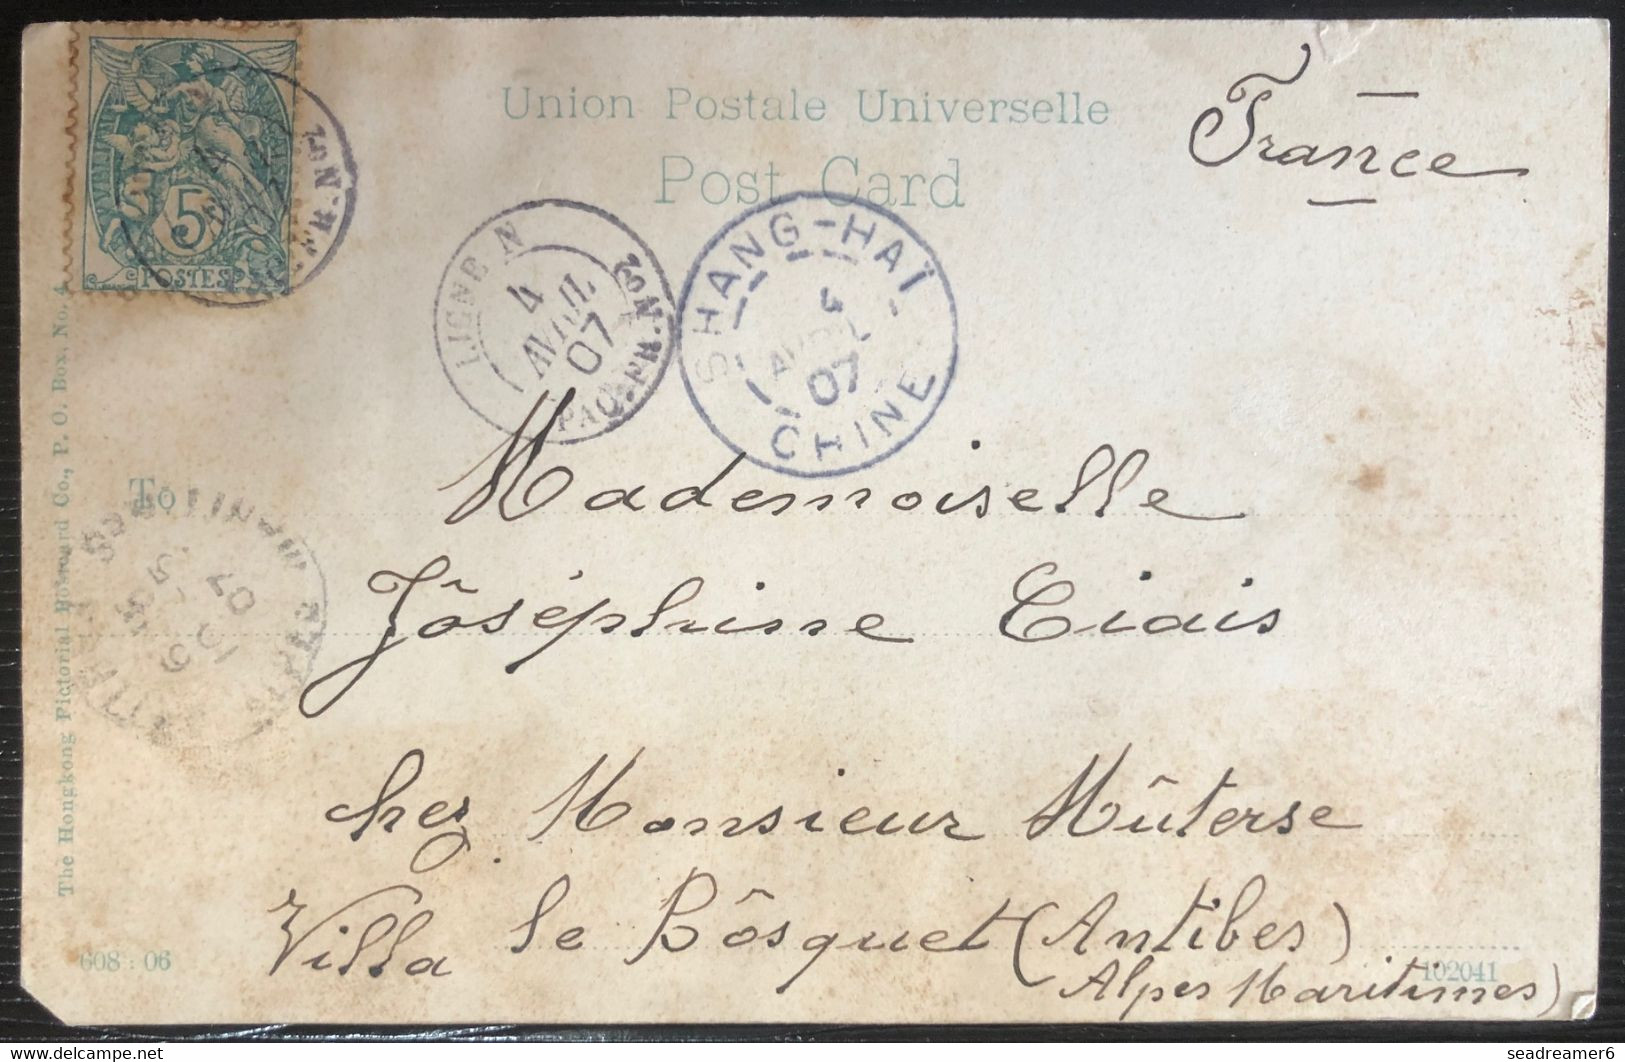 Union Postale Universelle
Post Card
France
5
POSTES
LIGNE N
4
AVRIL
07
PAQ. FR. No 2
SHANG-HAÏ
4
AVRIL
07
CHINE
To
Mademoiselle
Jôséphine Ciais
chez Monsieur Mûterse
Villa le Bôsquet (Antibes)
Alpes Maritimes)
The Hongkong Pictorial Postcard Co., P. O. Box. No. 4.
608 : 06
102041
delcampe.net
seadreamer6